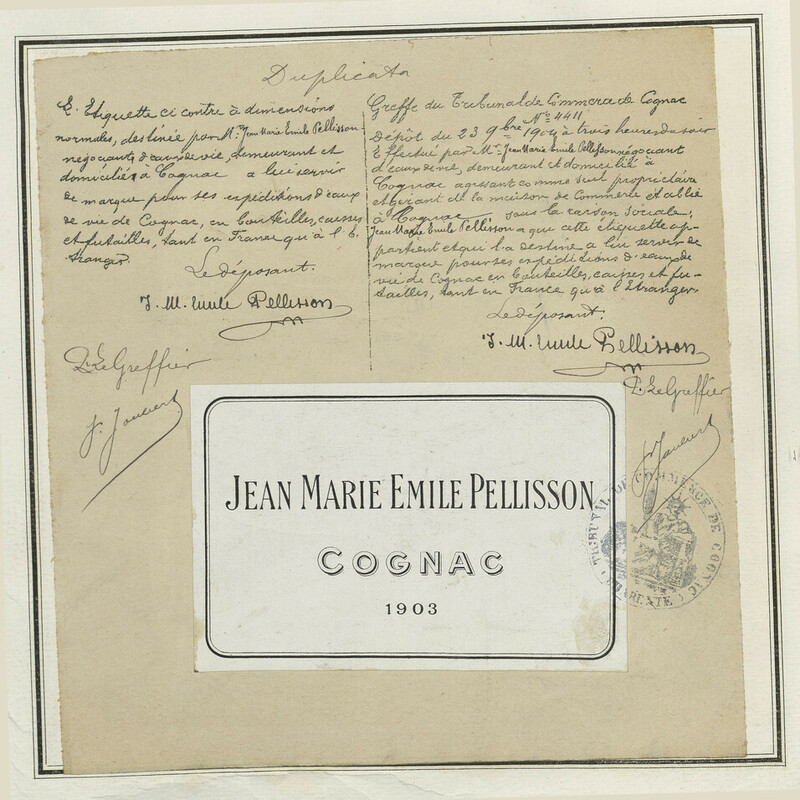 Duplicata
E. Etiquette ci contre à dimensions
normales, destinée par Mr. Jean Marie Emile Pellisson
négociant d'eaux de vie, demeurant et
domicilié à Cognac a lui servir
de marque pour ses expéditions d'eaux
de vie de Cognac, en bouteilles, caisses
et futailles, tant en France qu'à l'E-
tranger.
Le déposant.
J. M. Emile Pellisson
Pr Le Greffier
J. Joubert
Greffe du Tribunal de Commerce de Cognac
No 4411
Dépôt du 23 9bre 1904 à trois heures du soir
Effectué par Mr. Jean Marie Emile Pellisson négociant
d'eaux de vie, demeurant et domicilié à
Cognac agissant comme seul propriétaire
et gérant de la maison de Commerce établie
à Cognac sous la raison sociale;
Jean Marie Emile Pellisson a que cette étiquette ap-
partient et qui l'a destine a lui servir de
marque pour ses expéditions d'eaux de
vie de Cognac en bouteilles, caisses et fu-
tailles, tant en France qu'à l'Etranger.
Le déposant.
J. M. Emile Pellisson
P. Le Greffier
J. Joubert
JEAN MARIE EMILE PELLISSON
COGNAC
1903
TRIBUNAL DE COMMERCE DE COGNAC
(CHARENTE)